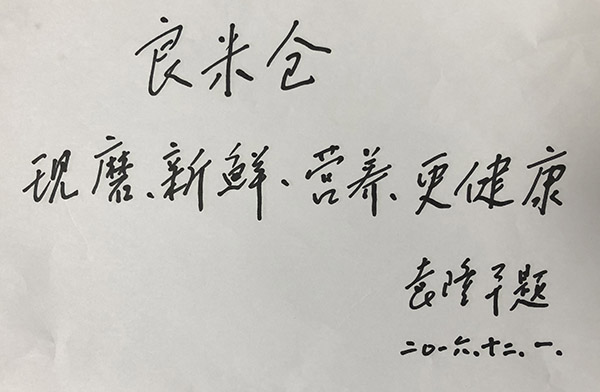 良米仓
现磨、新鲜、营养、更健康
袁隆平题
二〇一六.十二.一.